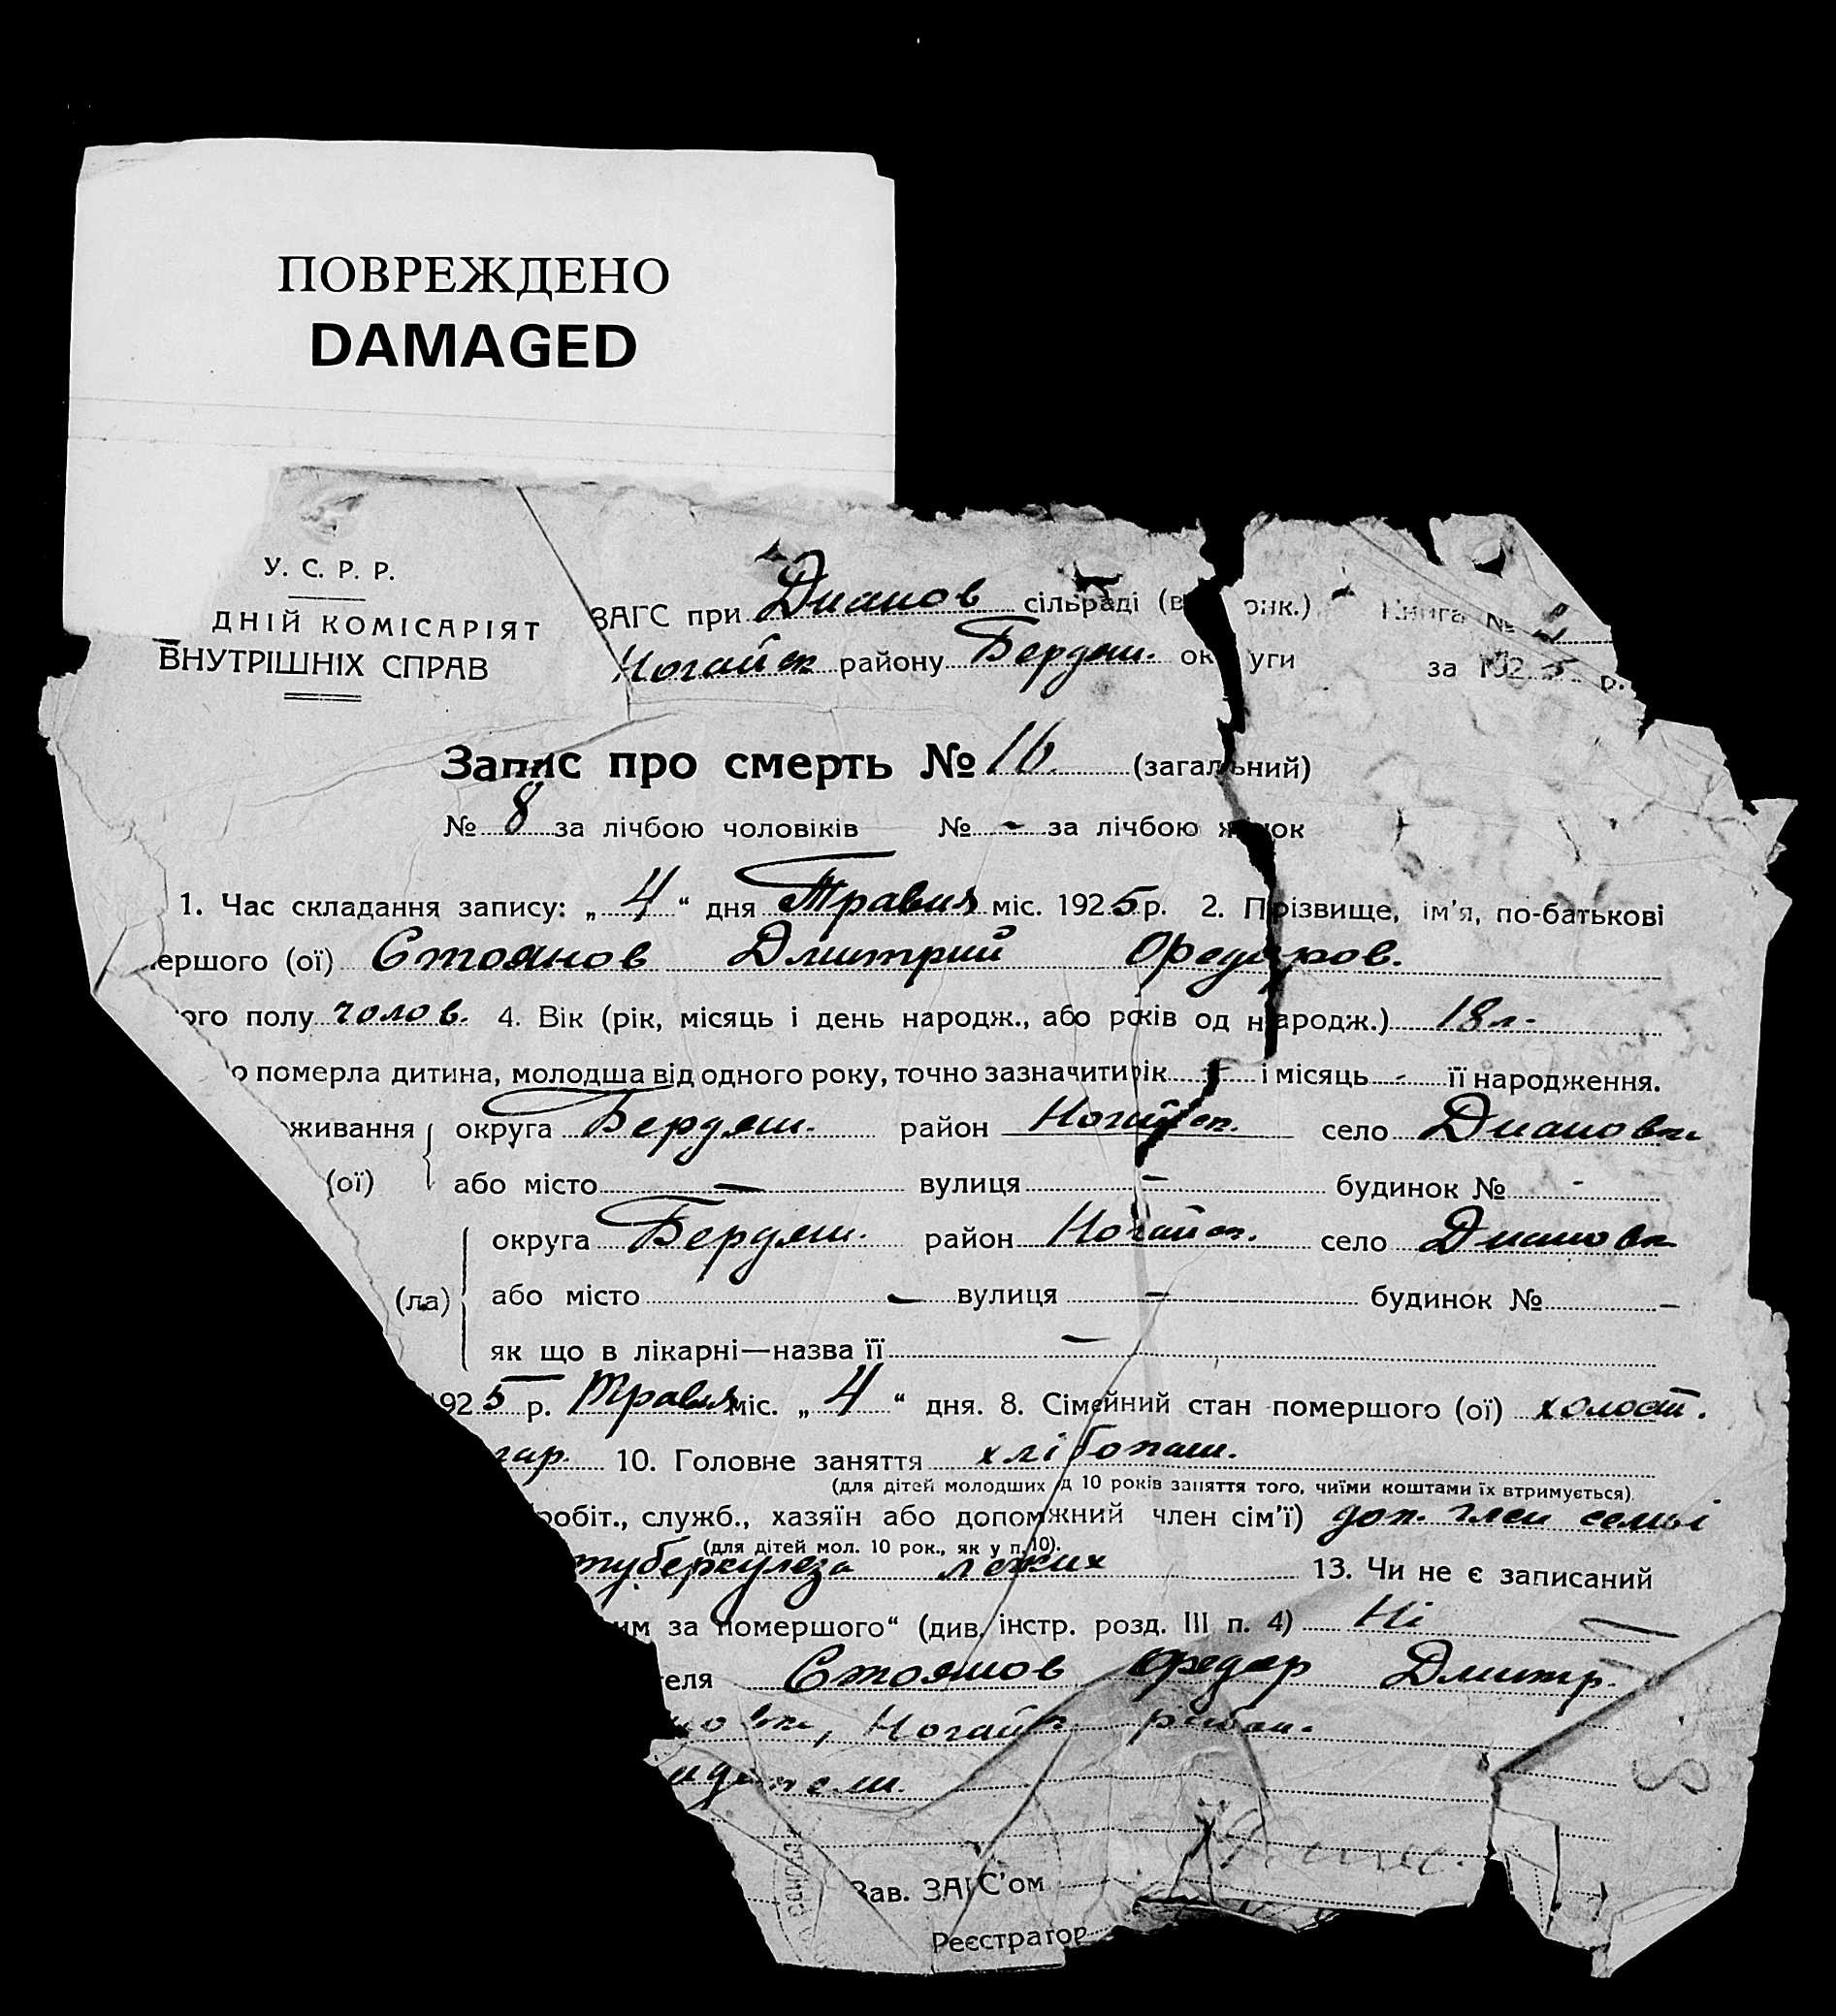 ПОВРЕЖДЕНО
DAMAGED
У. С. Р. Р.
ДНІЙ КОМІСАРІЯТ
ВНУТРІШНІХ СПРАВ
ЗАГС при Дианов сільраді (в онк.) Книга №
Ногайск району Бердян. округи за 1925 р.
Запис про смерть № 16 (загальний)
№ 8 за лічбою чоловіків № - за лічбою жінок
1. Час складання запису: „ 4 “ дня Травня міс. 1925 р. 2. Прізвище, ім'я, по-батькові
ершого (ої) Стоянов Дмитрий Федоров.
ого полу чолов. 4. Вік (рік, місяць і день народж., або років од народж.) 18 л-
о померла дитина, молодша від одного року, точно зазначити рік - і місяць - її народження.
живання округа Бердян. район Ногайск. село Диановка
(ої) або місто — вулиця — будинок № -
округа Бердян. район Ногайск. село Диановка
(ла) або місто — вулиця — будинок № —
як що в лікарні—назва її —
1925 р. Травня міс. „ 4 “ дня. 8. Сімейний стан помершого (ої) холост.
гар. 10. Головне заняття хлібопаш.
(для дітей молодших ід 10 років заняття того, чиїми коштами їх втримується).
робіт., служб., хазяїн або допоміжний член сім'ї) доп. член семьі
(для дітей мол. 10 рок., як у п. 10).
туберкулеза легких 13. Чи не є записаний
им за помершого“ (див. інстр. розд. III п. 4) Ні
теля Стоянов Федор Дмитр.
новка, Ногайск район.
идетели.
Зав. ЗАГС'ом
Реєстратор